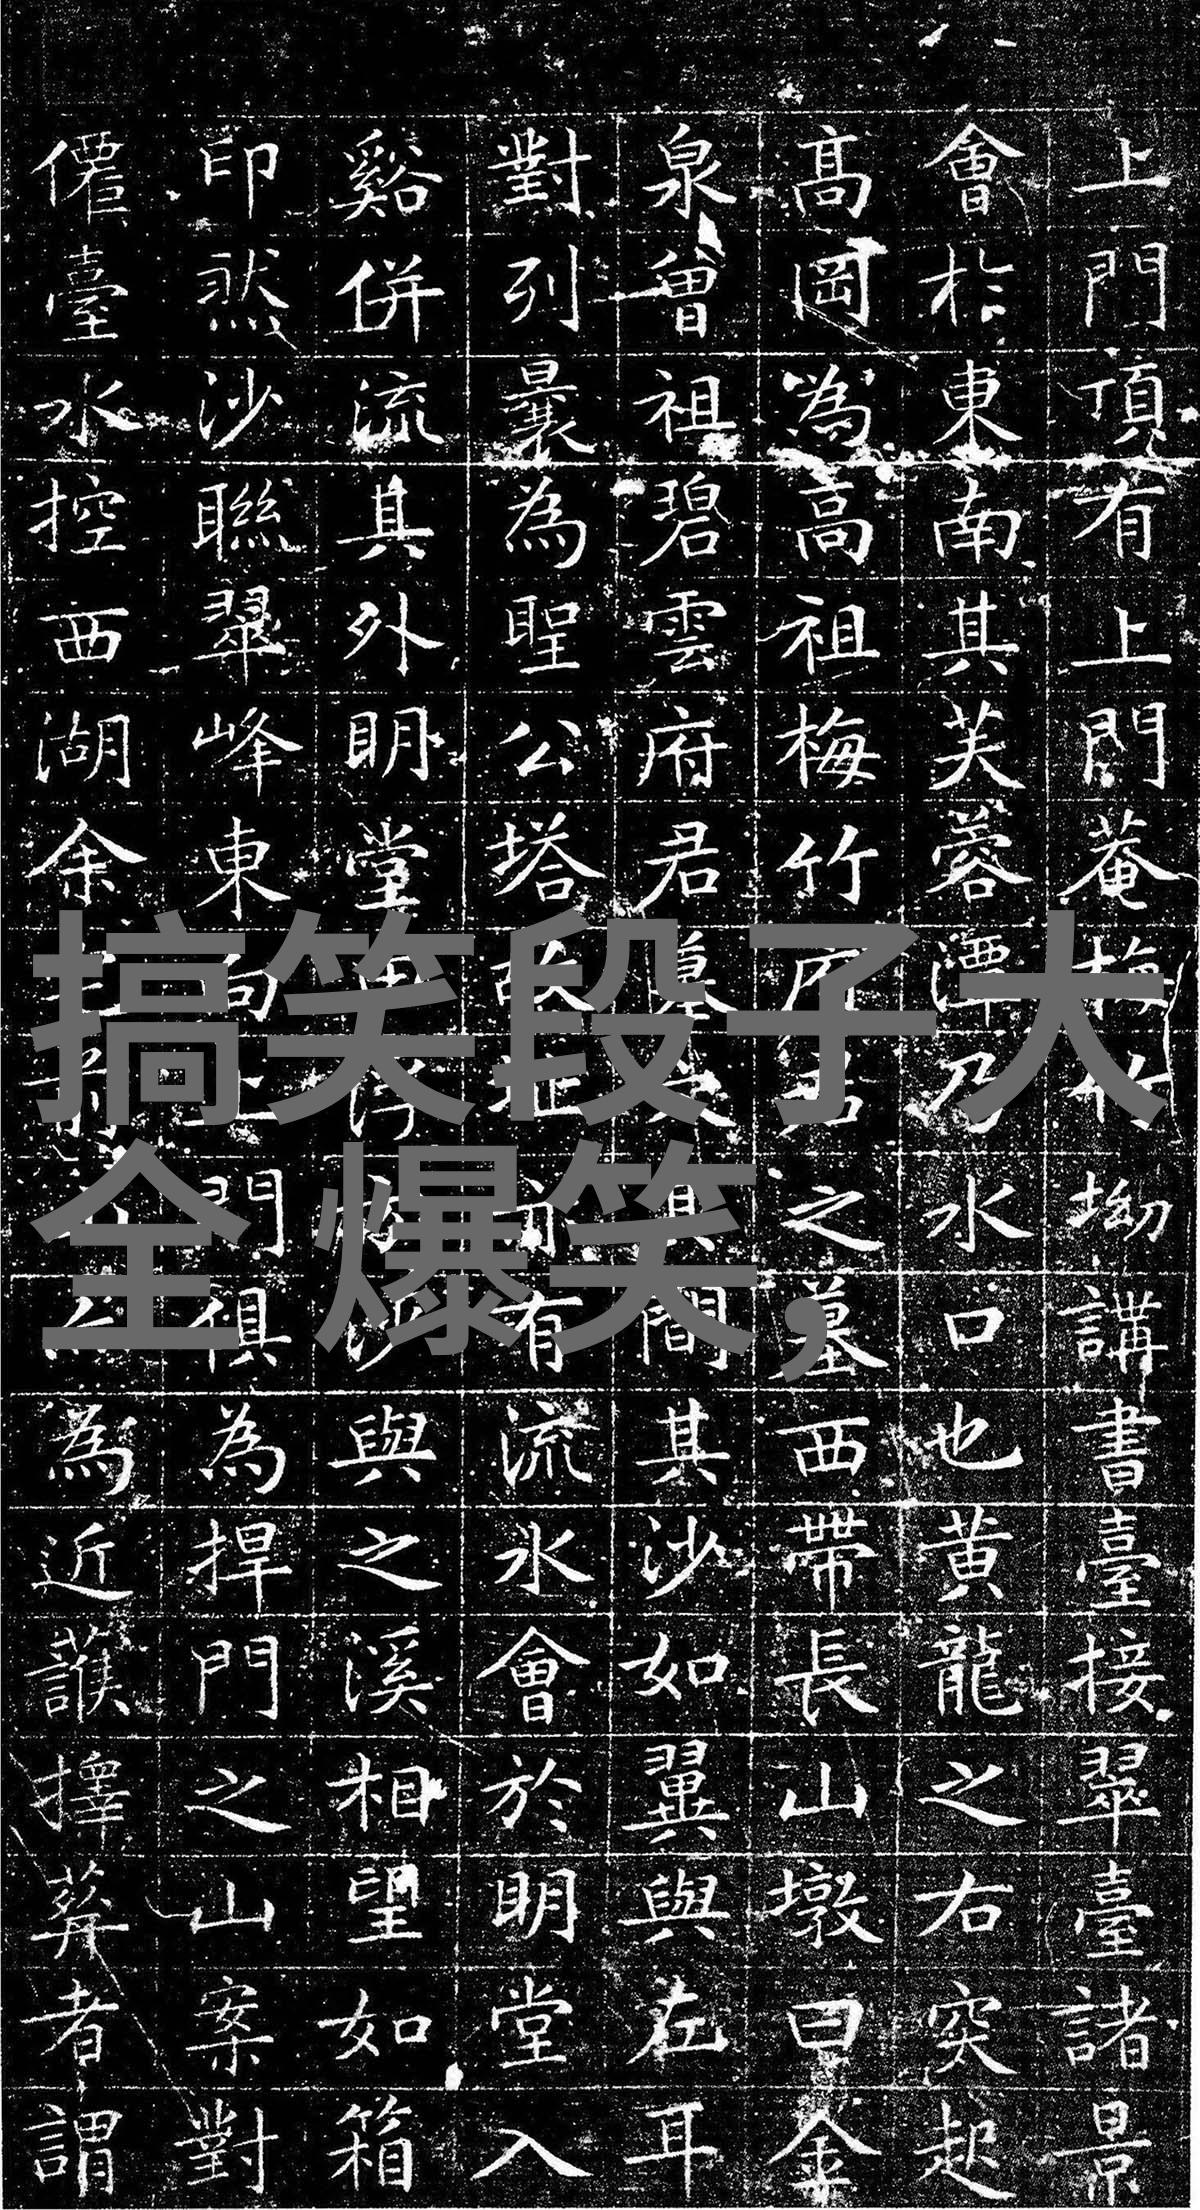 上門頂有上門菴梅竹坳講書臺接翠臺諸景
會於東南其芙蓉潭乃水口也黄龍之右突起
髙岡為高祖梅竹府君之墓西帶長山墩曰金
泉曾祖碧雲府君墓其間其沙如翼與左耳
對列曩為聖公塔故址前有流水會於明堂入
谿併流其外明堂沙與之溪相望如箱
印然沙聯翠峰東向上門俱為捍門之山案對
僊臺水控西湖余為近擇葬者謂
搞笑段子大
全 爆笑,